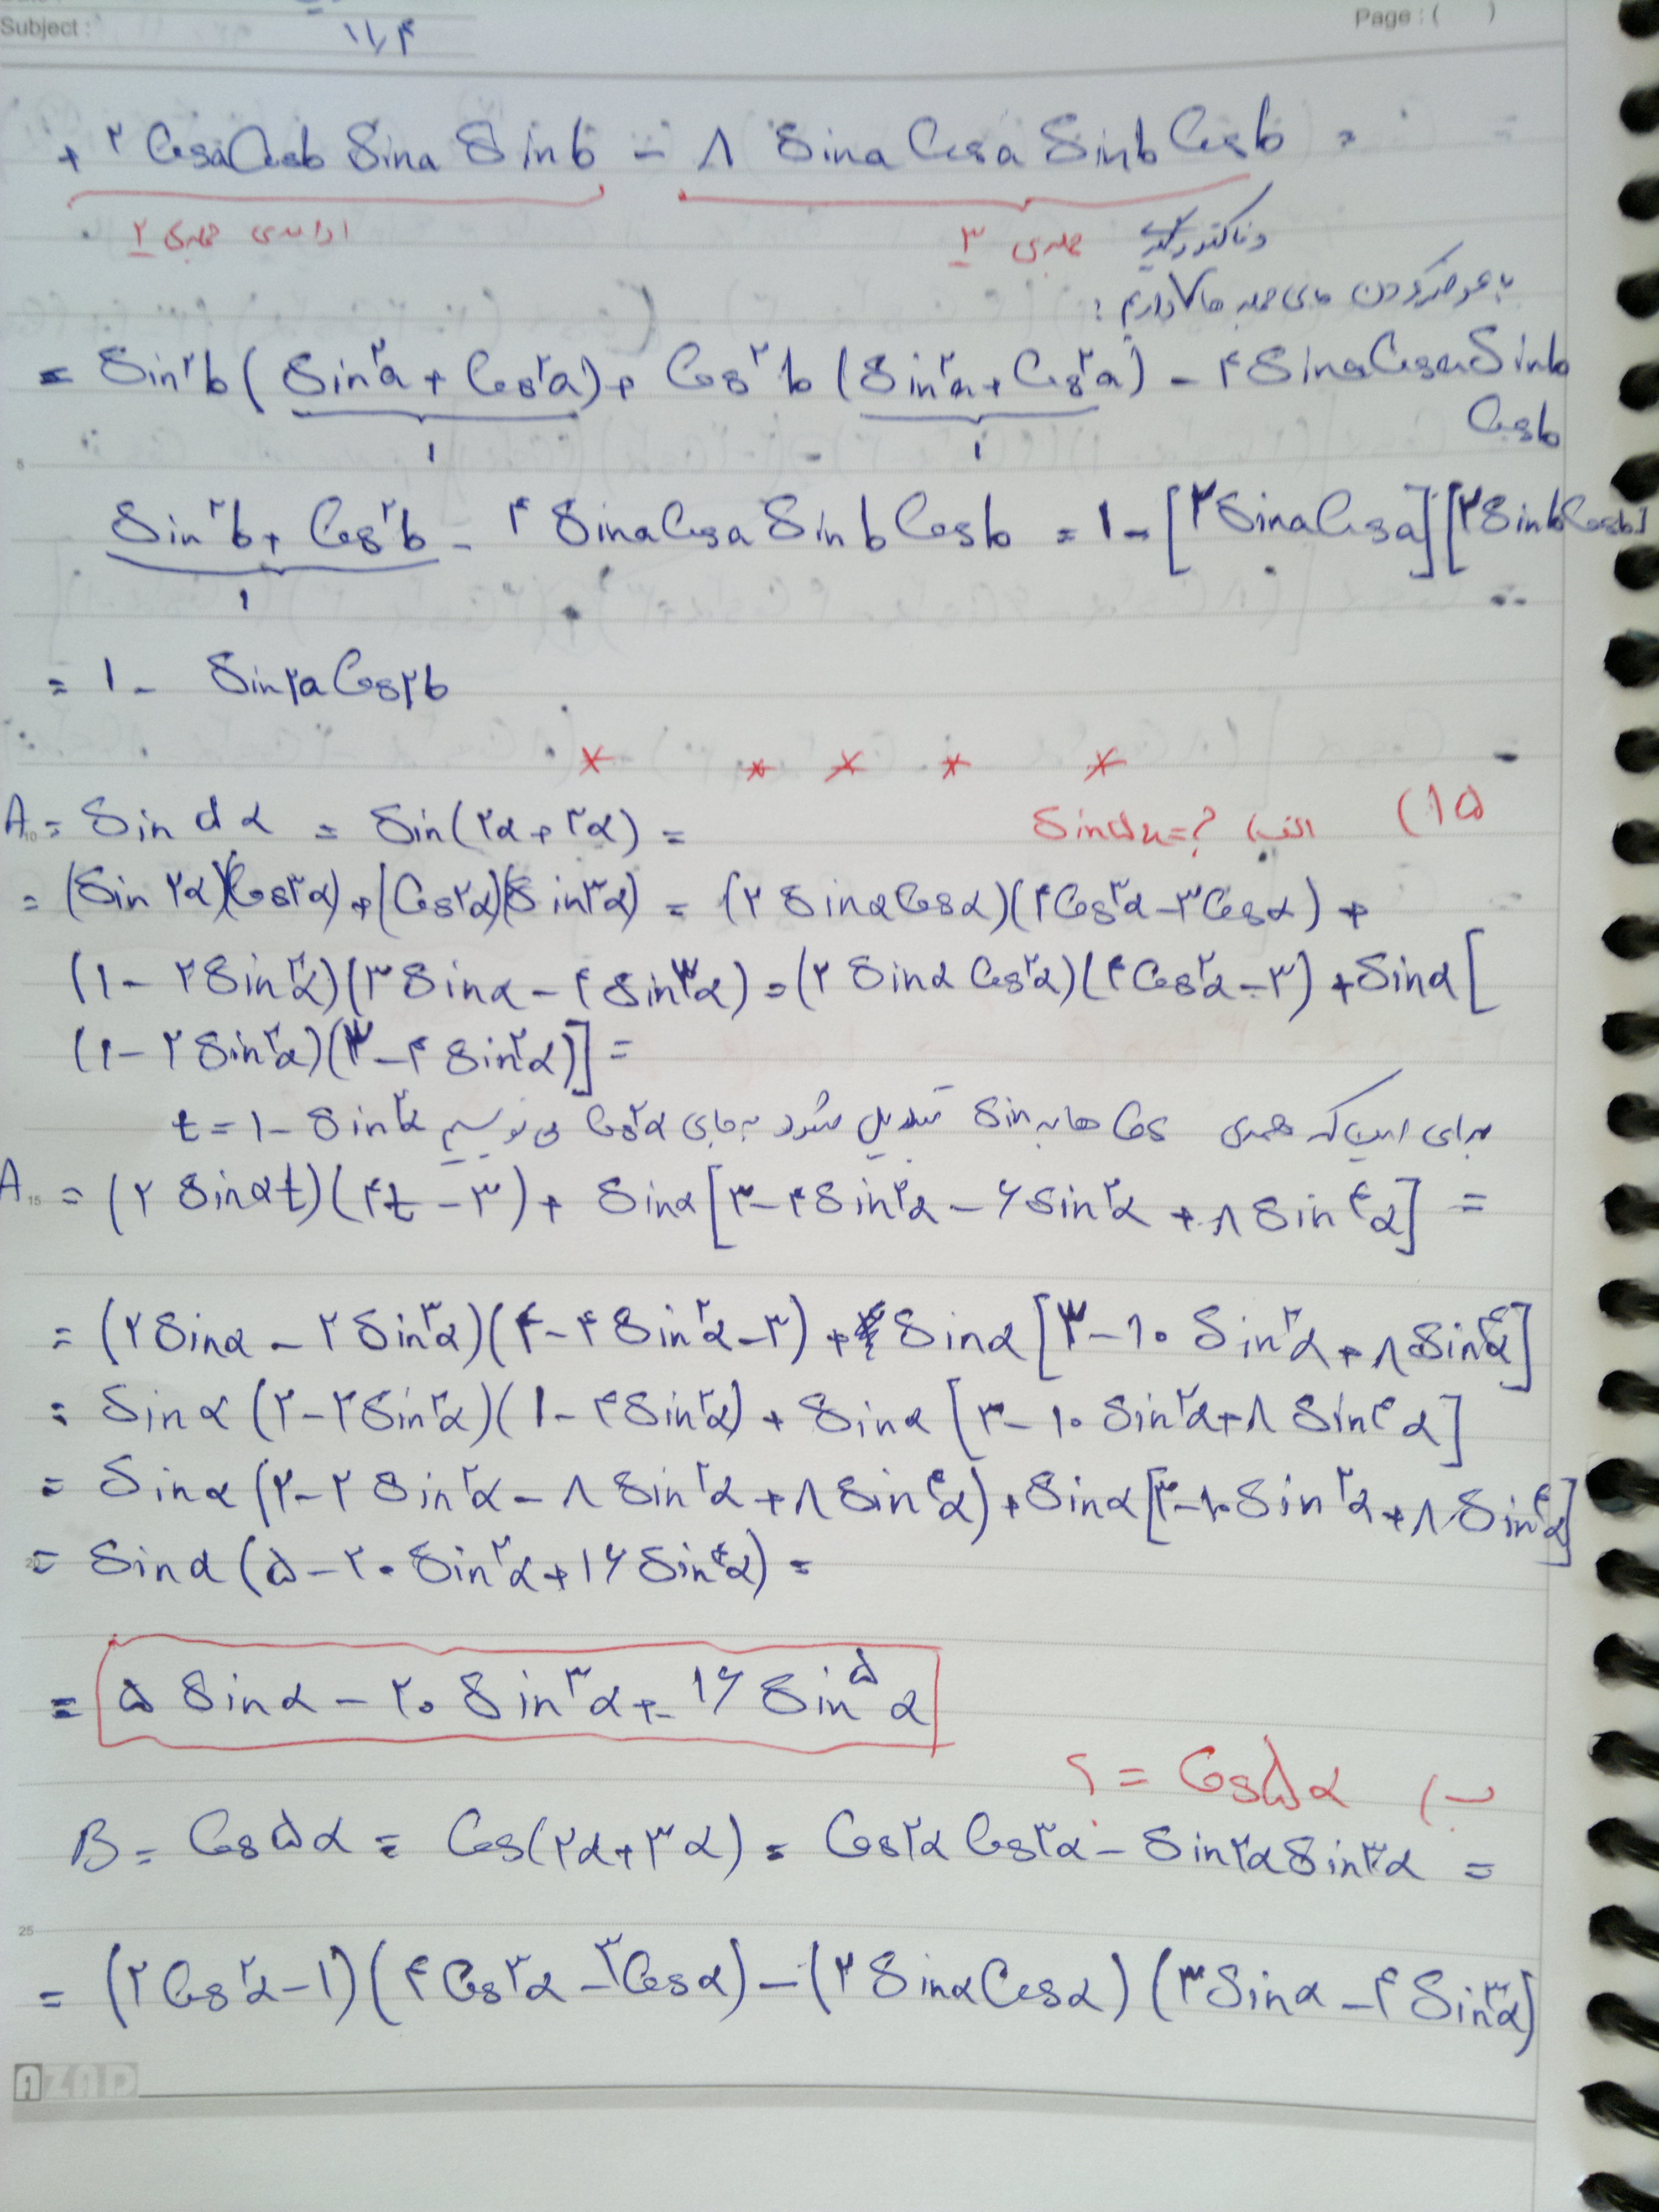 Subject:
۱۱,۴
Page : ( )
+ ۲ Cosa Cosb Sina Sinb - ۸ Sina Cosa Sinb Cosb =
ادامه‌ی جمله‌ی ۲
جمله‌ی ۳
و فاکتورگیری
با عوض کردن جای جمله ها داریم :
= Sin²b ( Sin²a + Cos²a ) + Cos²b ( Sin²a + Cos²a ) - ۴ Sina Cosa Sinb Cosb
۱ ۱
Sin²b + Cos²b - ۴ Sina Cosa Sinb Cosb = ۱ - [۲ Sina Cosa] [۲ Sinb Cosb]
۱
= ۱ - Sin۲a Cos۲b
* * * * *
۱۵) الف) Sin۵α = ?
A = Sin ۵α = Sin(۲α + ۳α) =
10
= (Sin ۲α)(Cos۳α) + (Cos۲α)(Sin۳α) = (۲ Sinα Cosα)(۴Cos³α - ۳Cosα) +
(۱ - ۲Sin²α)(۳Sinα - ۴Sin³α) = (۲ Sinα Cos²α)(۴Cos²α - ۳) + Sinα [
(۱ - ۲Sin²α)(۳ - ۴Sin²α)] =
برای این که همه‌ی Cos ها به Sin تبدیل شود به جای Cos²α می نویسیم t = ۱ - Sin²α
A = (۲ Sinα t)(۴t - ۳) + Sinα [۳ - ۴Sin²α - ۶Sin²α + ۸Sin⁴α] =
15
= (۲Sinα - ۲Sin³α)(۴ - ۴Sin²α - ۳) + Sinα [۳ - ۱۰ Sin²α + ۸Sin⁴α]
= Sinα (۲ - ۲Sin²α)(۱ - ۴Sin²α) + Sinα [۳ - ۱۰ Sin²α + ۸ Sin⁴α]
= Sinα (۲ - ۲ Sin²α - ۸ Sin²α + ۸ Sin⁴α) + Sinα [۳ - ۱۰ Sin²α + ۸ Sin⁴α]
= Sinα (۵ - ۲۰ Sin²α + ۱۶ Sin⁴α) =
20
= ۵ Sinα - ۲۰ Sin³α + ۱۶ Sin⁵α
ب) Cos۵α = ؟
B = Cos۵α = Cos(۲α + ۳α) = Cos۲α Cos۳α - Sin۲α Sin۳α =
25
= (۲Cos²α - ۱)(۴Cos³α - ۳Cosα) - (۲ Sinα Cosα)(۳Sinα - ۴Sin³α)
AZAD